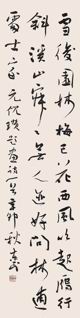 雪後園林梅已花西風吹起鴈行
斜溪山寂寂無人迹好問林逋
處士家 元倪瓚題畫詩 辛卯秋